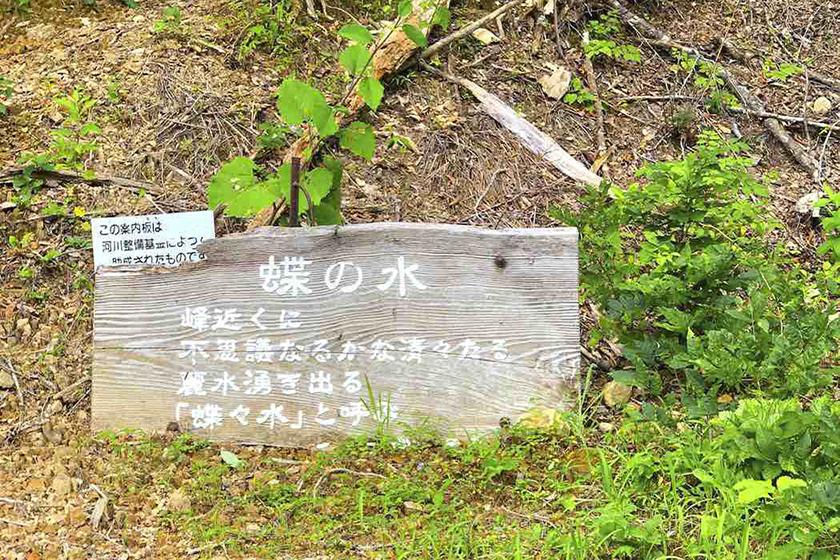 この案内板は
河川整備基金によっ
助成されたものです
蝶の水
峰近くに
不思議なるかな清々たる
麗水湧き出る
「蝶々水」と呼ぶ